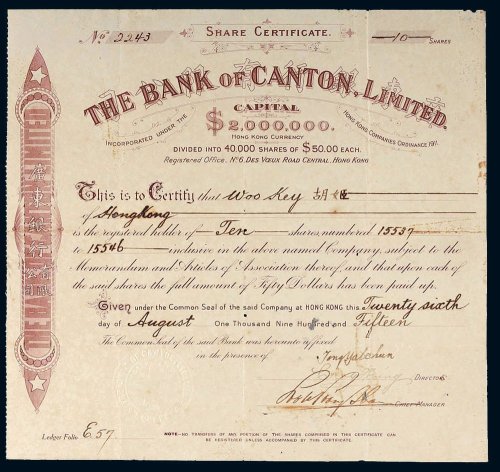 No 2243
SHARE CERTIFICATE.
10 SHARES
THE BANK OF CANTON, LIMITED.
INCORPORATED UNDER THE HONG KONG COMPANIES ORDINANCE 1911.
CAPITAL
$2,000,000.
HONG KONG CURRENCY
DIVIDED INTO 40,000 SHARES OF $50.00 EACH.
Registered Office, No 6, DES VŒUX ROAD CENTRAL, HONG KONG
廣東銀行
THE BANK OF CANTON LIMITED
This is to Certify that Woo Key
of HongKong
is the registered holder of Ten shares, numbered 15537
to 15546 inclusive in the above named Company, subject to the
Memorandum and Articles of Association thereof, and that upon each of
the said shares the full amount of Fifty Dollars has been paid up.
Given under the Common Seal of the said Company at HONG KONG this Twenty sixth
day of August One Thousand Nine Hundred and Fifteen
The Common Seal of the said Bank was hereunto affixed
in the presence of
DIRECTORS
CHIEF MANAGER
Ledger Folio E.57
NOTE:- NO TRANSFER OF ANY PORTION OF THE SHARES COMPRISED IN THIS CERTIFICATE CAN
BE REGISTERED UNLESS ACCOMPANIED BY THIS CERTIFICATE.